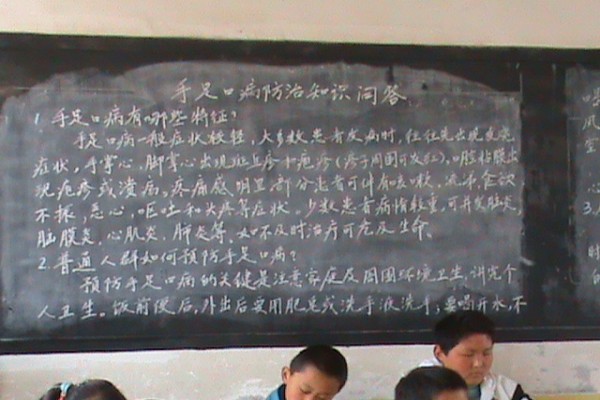 手足口病防治知识问答
1.手足口病有哪些特征?
手足口病一般症状较轻,大多数患者发病时,往往先出现发烧
症状,手掌心、脚掌心出现斑丘疹和疱疹(疹子周围可发红),口腔粘膜出
现疱疹或溃疡,疼痛感明显。部分患者可伴有咳嗽、流涕、食欲
不振、恶心、呕吐和头疼等症状。少数患者病情较重,可并发脑炎,
脑膜炎、心肌炎、肺炎等,如不及时治疗可危及生命。
2.普通人群如何预防手足口病?
预防手足口病的关键是注意家庭及周围环境卫生,讲究个
人卫生。饭前便后,外出后要用肥皂或洗手液洗手;要喝开水,不
风
心
3.
时
的